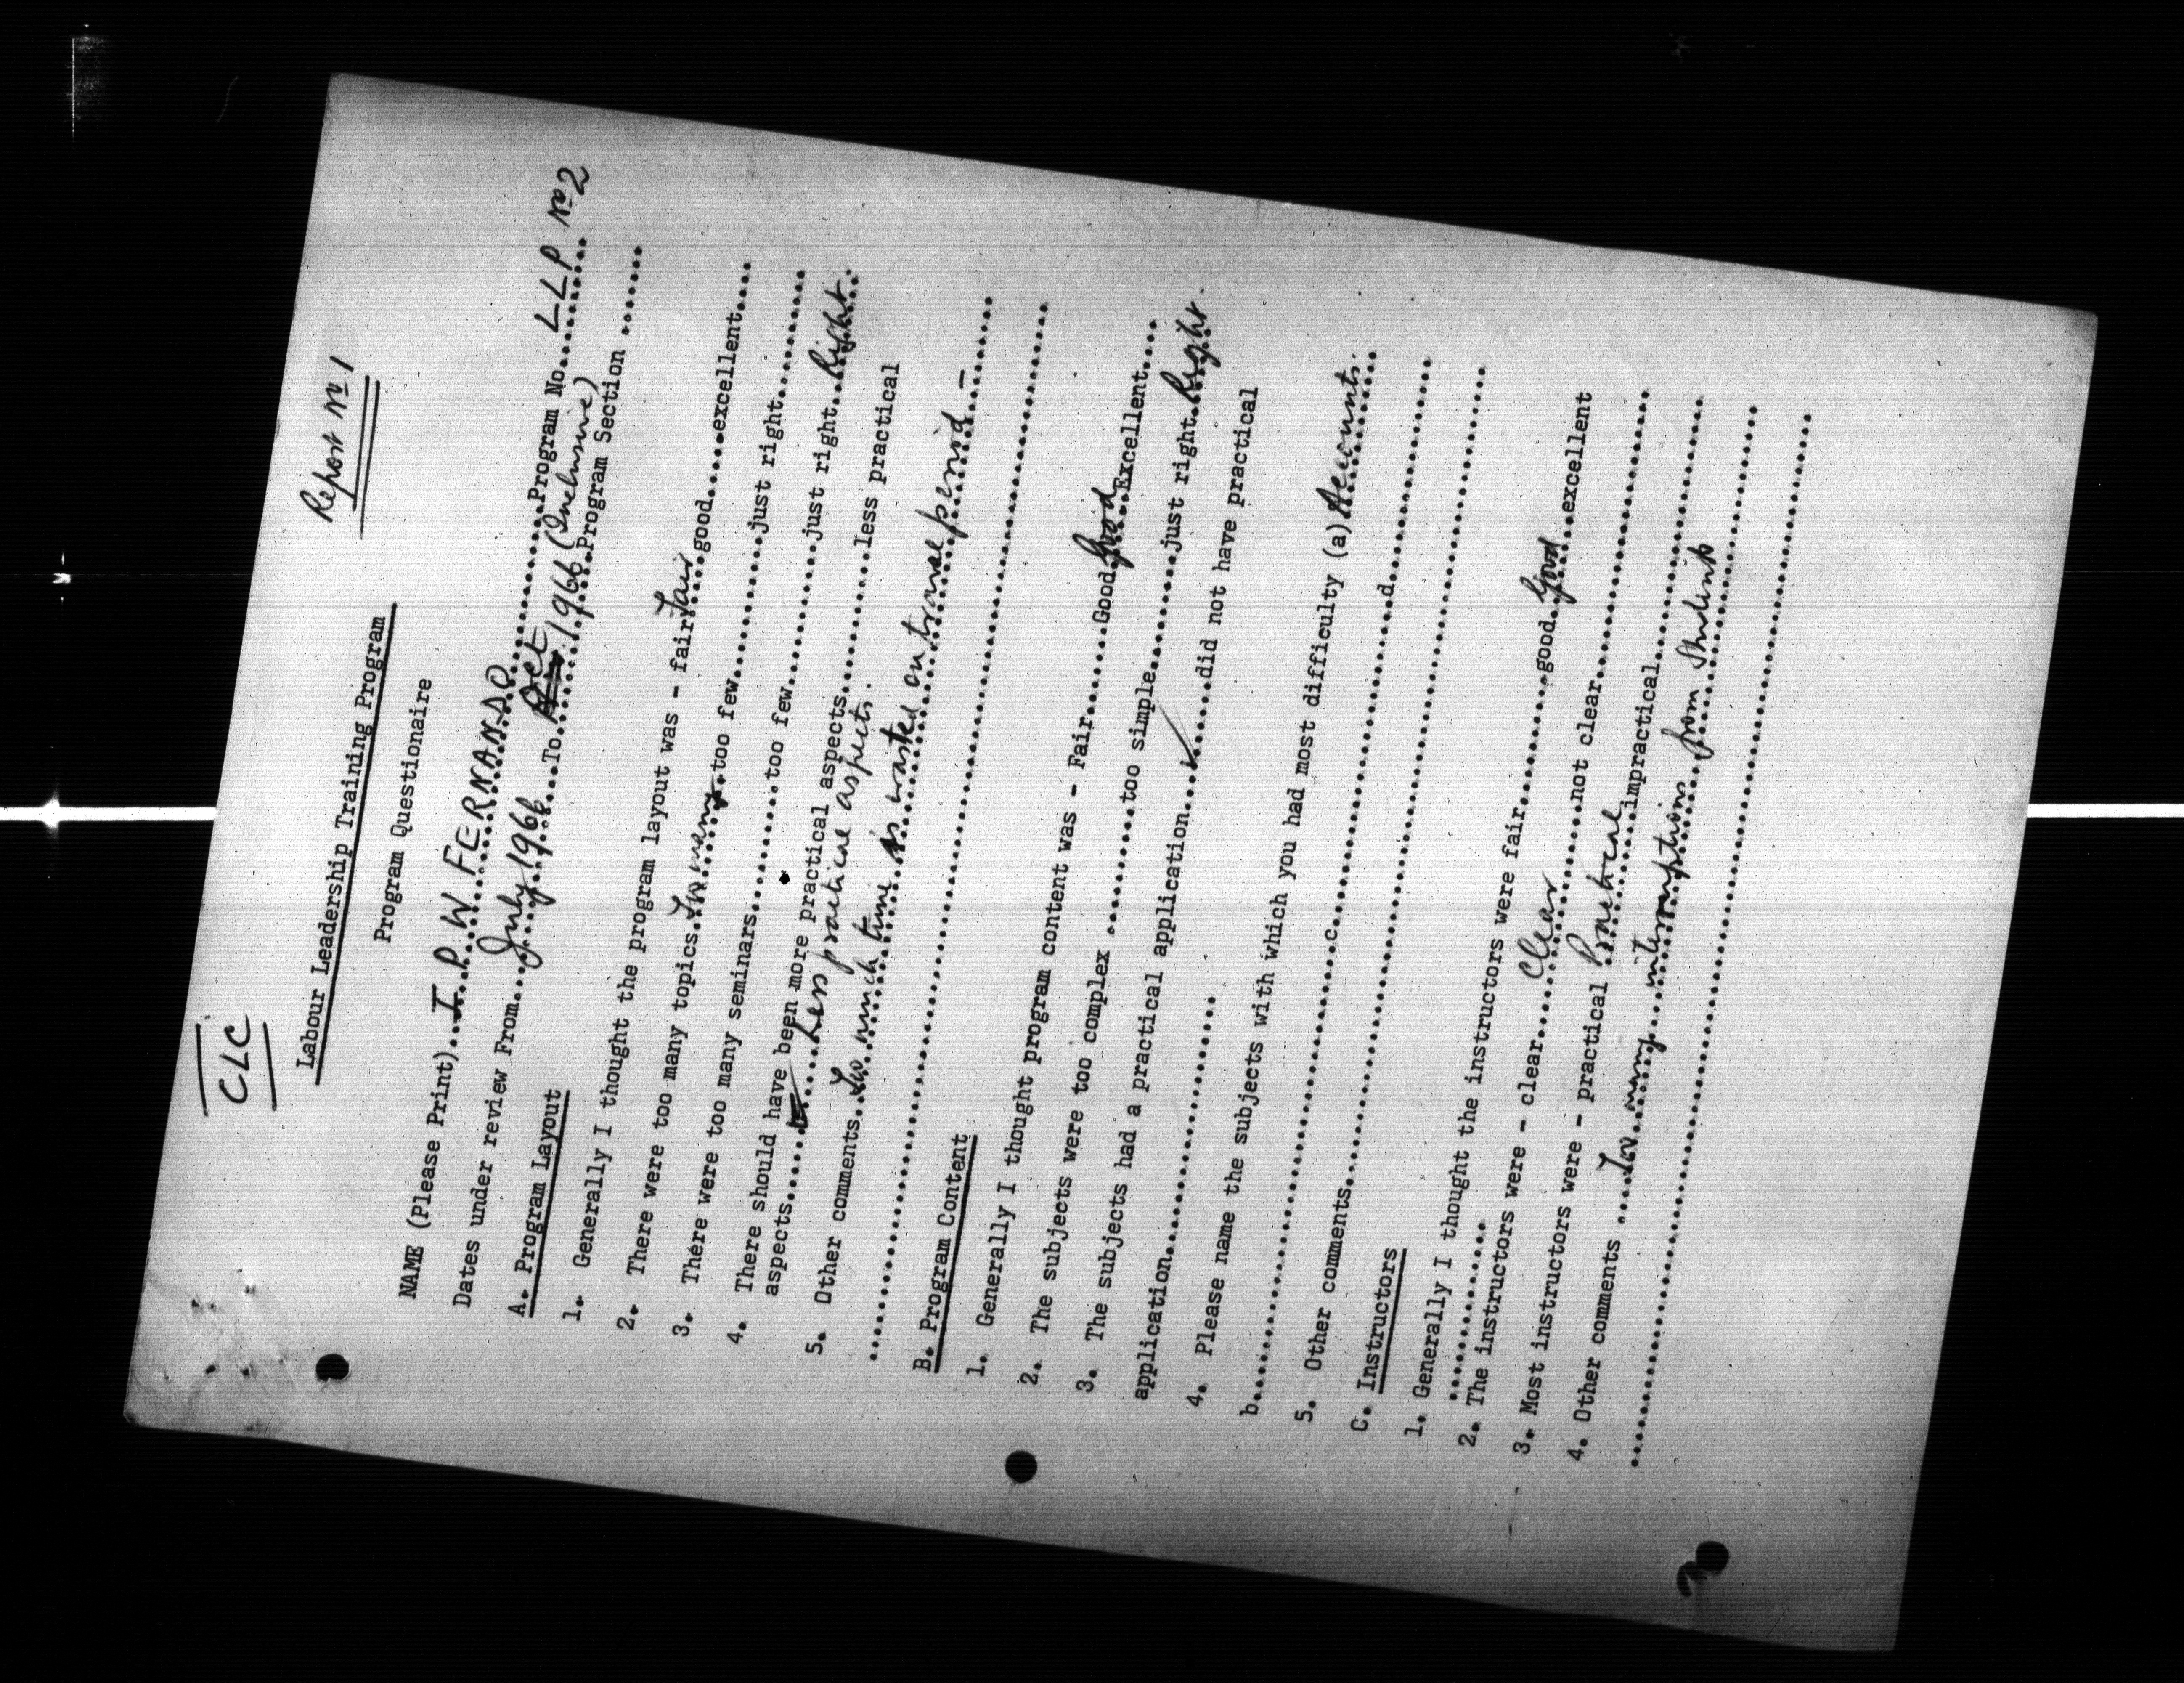 CLC
Report No 1
Labour Leadership Training Program
Program Questionaire
NAME (Please Print)..I. P. W. FERNANDO..........Program No.....LLP No 2
Dates under review From....July 1966...To.Oct 1966 (Inclusive)
Program Section ......
A. Program Layout
1. Generally I thought the program layout was - fair Fair good.....excellent.....
2. There were too many topics.Too many.too few...........just right..........
3. There were too many seminars...........too few...........just right..Right..
4. There should have been more practical aspects............less practical
aspects........Less practical aspects.
5. Other comments..Too much time is wasted on travel period -
B. Program Content
1. Generally I thought program content was - Fair.......Good Good Excellent....
2. The subjects were too complex .........too simple..........just right.Right.
3. The subjects had a practical application....✓....did not have practical
application....................
4. Please name the subjects with which you had most difficulty (a) Accounts.
b........................................c...............................d..................
5. Other comments........................
C. Instructors
1. Generally I thought the instructors were fair.........good..Good..excellent
2. The instructors were - clear....Clear......not clear..................
3. Most instructors were - practical Practical impractical................
4. Other comments ....Too many interruptions from Students